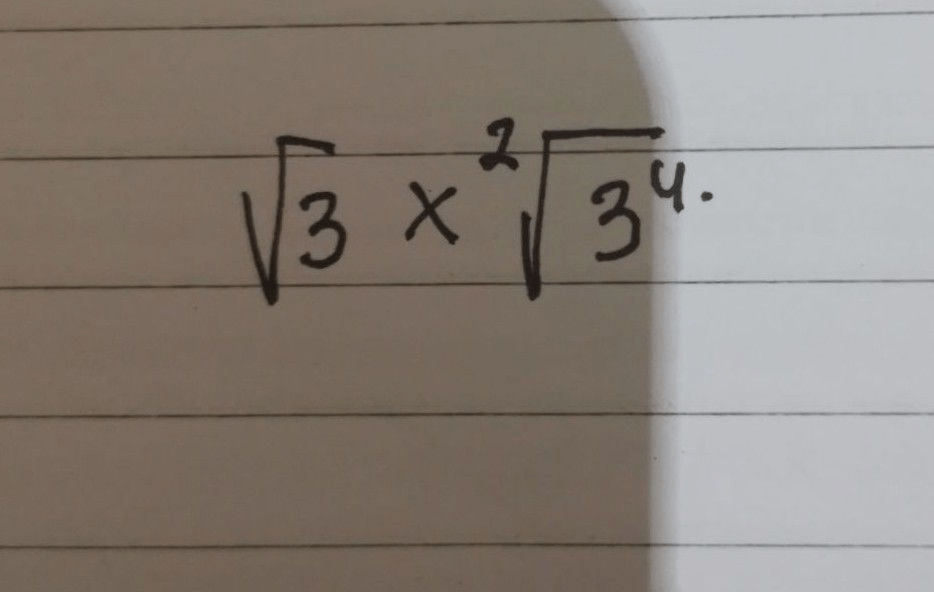 √3 × ²√3⁴.